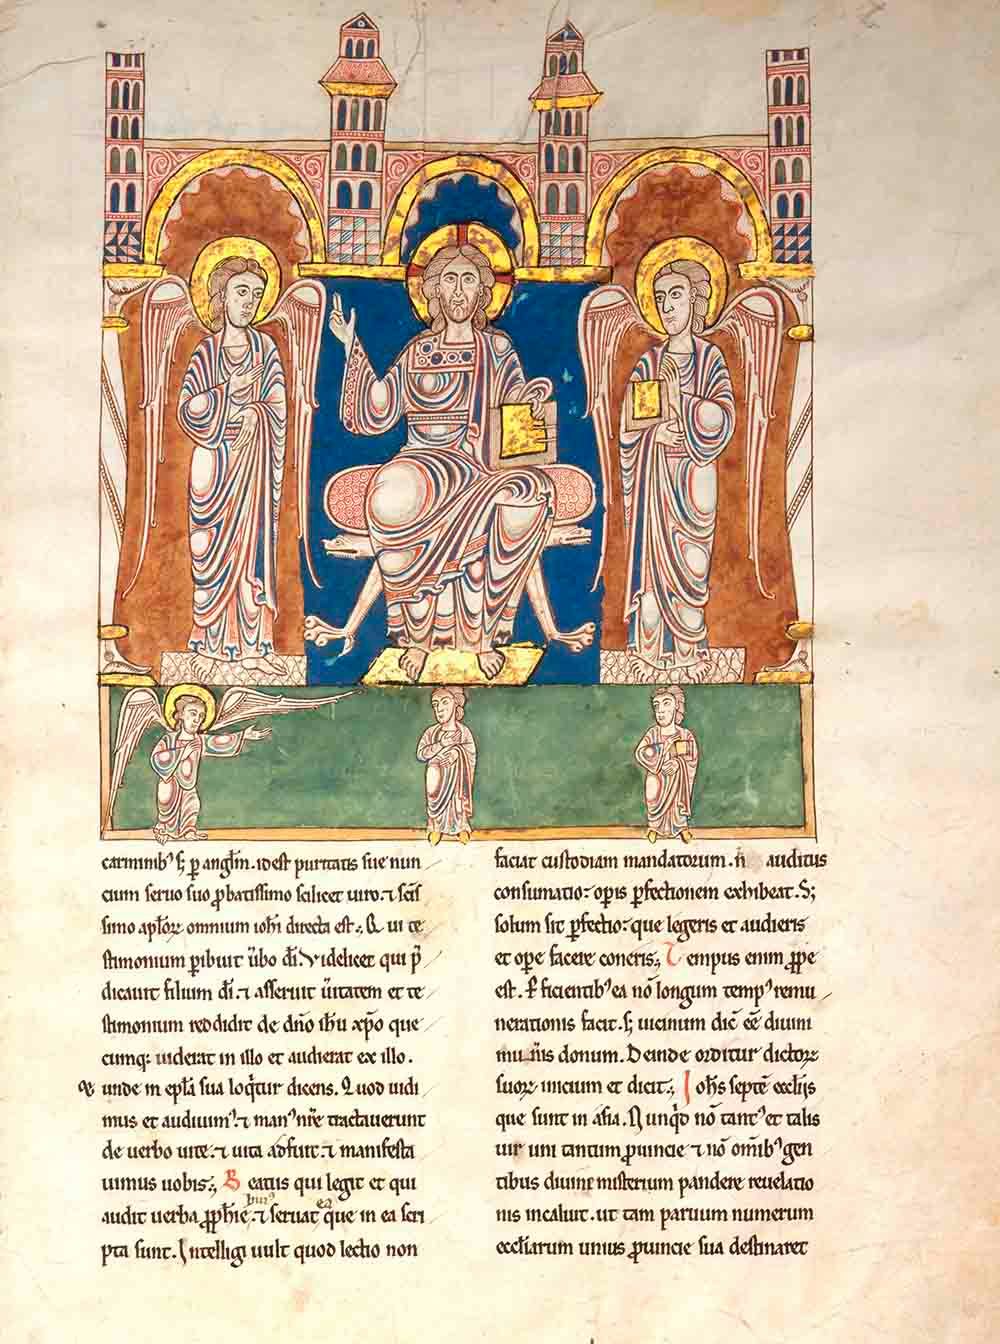 carminibꝰ ſ; ꝑ angl̄m. id eſt puritatis ſue nun
cium seruo suo ꝓbatiſſimo scilicet uiro. ⁊ sc̄iſ
simo apl̄oꝝ omnium ioh̄i directa est. Qui te
stimonium ꝑibuit ūbo dī. Videlicet qui p̄
dicauit filium dī. ⁊ asseruit ūitatem et te
stimonium reddidit de dn̄o ih̄u xp̄o que
cumq; uiderat in illo et audierat ex illo.
unde in epl̄a sua loq̄tur dicens. Quod uidi
mus et audiuimꝰ. ⁊ manꝰ nr̄e tractauerunt
de uerbo uite. ⁊ uita adfuit. ⁊ manifesta
uimus uobis. Beatus qui legit et qui
audit uerba ꝓph̄ie. huiꝰ ⁊ seruat ea que in ea scri
pta sunt. Intelligi uult quod lectio non
faciat custodiam mandatorum. n̄ auditus
consumatio: opis ꝑfectionem exhibeat. S;
solum sit ꝑfectio: que legeris et audieris
et oꝑe facere coneris. Tempus enim ꝓpe
est. ꝑficientibꝰ ea nō longum tempꝰ remu
nerationis facit. ſ; uicinum dic̄ eē diuini
muneris donum. Deinde orditur dictoꝝ
suoꝝ inicium et dicit. Ioh̄s septē eccl̄iis
que sunt in asia. Nunq̄d nō tantꝰ et talis
uir uni tantum ꝓuincie ⁊ nō om̄ibꝰ gen
tibus diuine misterium pandere reuelatio
nis incaluit. ut tam paruum numerum
eccl̄iarum unius ꝓuincie sua destinaret